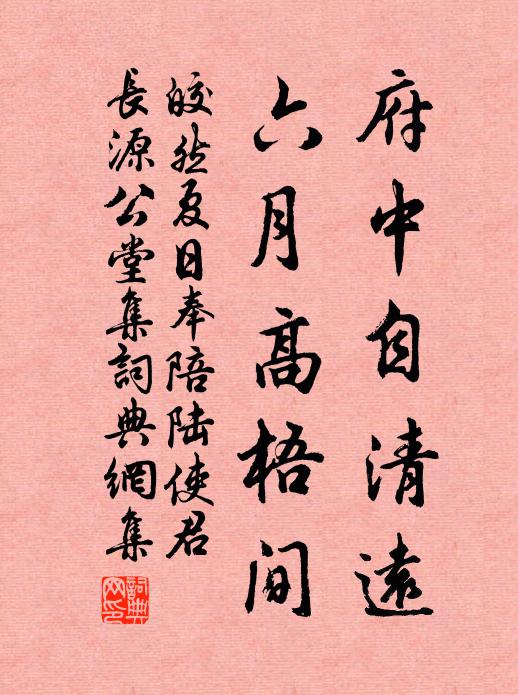 府中自清遠
六月高梧間
皎然夏日奉陪陸使君
長源公堂集詞典網集
詞典網印